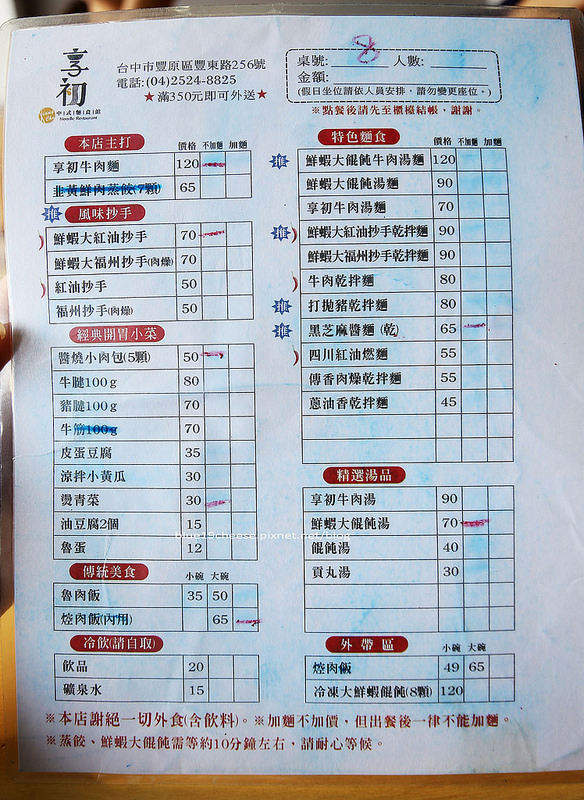 享初
中式麵食館
Noodle Restaurant
台中市豐原區豐東路256號
電話:(04)2524-8825
★滿350元即可外送★
桌號: 8 人數:
金額:
(假日坐位請依人員安排，請勿變更座位。)
※點餐後請先至櫃檯結帳，謝謝。
本店主打 價格 不加麵 加麵
享初牛肉麵 120
韭黃鮮肉蒸餃(7顆) 65
風味抄手
鮮蝦大紅油抄手 70
鮮蝦大福州抄手(肉燥) 70
紅油抄手 50
福州抄手(肉燥) 50
經典開胃小菜
醬燒小肉包(5顆) 50
牛腱100g 80
豬腱100g 70
牛筋100g 70
皮蛋豆腐 35
涼拌小黃瓜 30
燙青菜 30
油豆腐2個 15
魯蛋 12
傳統美食 小碗 大碗
魯肉飯 35 50
焢肉飯(內用) 65
冷飲(請自取)
飲品 20
礦泉水 15
特色麵食 價格 不加麵 加麵
推 鮮蝦大餛飩牛肉湯麵 120
鮮蝦大餛飩湯麵 90
享初牛肉湯麵 70
推 鮮蝦大紅油抄手乾拌麵 90
鮮蝦大福州抄手乾拌麵 90
牛肉乾拌麵 80
推 打拋豬乾拌麵 80
推 黑芝麻醬麵 (乾) 65
四川紅油燃麵 55
傳香肉燥乾拌麵 55
蔥油香乾拌麵 45
精選湯品
享初牛肉湯 90
鮮蝦大餛飩湯 70
餛飩湯 40
貢丸湯 30
外帶區 小碗 大碗
焢肉飯 49 65
冷凍大鮮蝦餛飩(8顆) 120
※本店謝絕一切外食(含飲料)。※加麵不加價，但出餐後一律不能加麵。
※蒸餃、鮮蝦大餛飩需等約10分鐘左右，請耐心等候。
blue19cheese.pixnet.net/blog